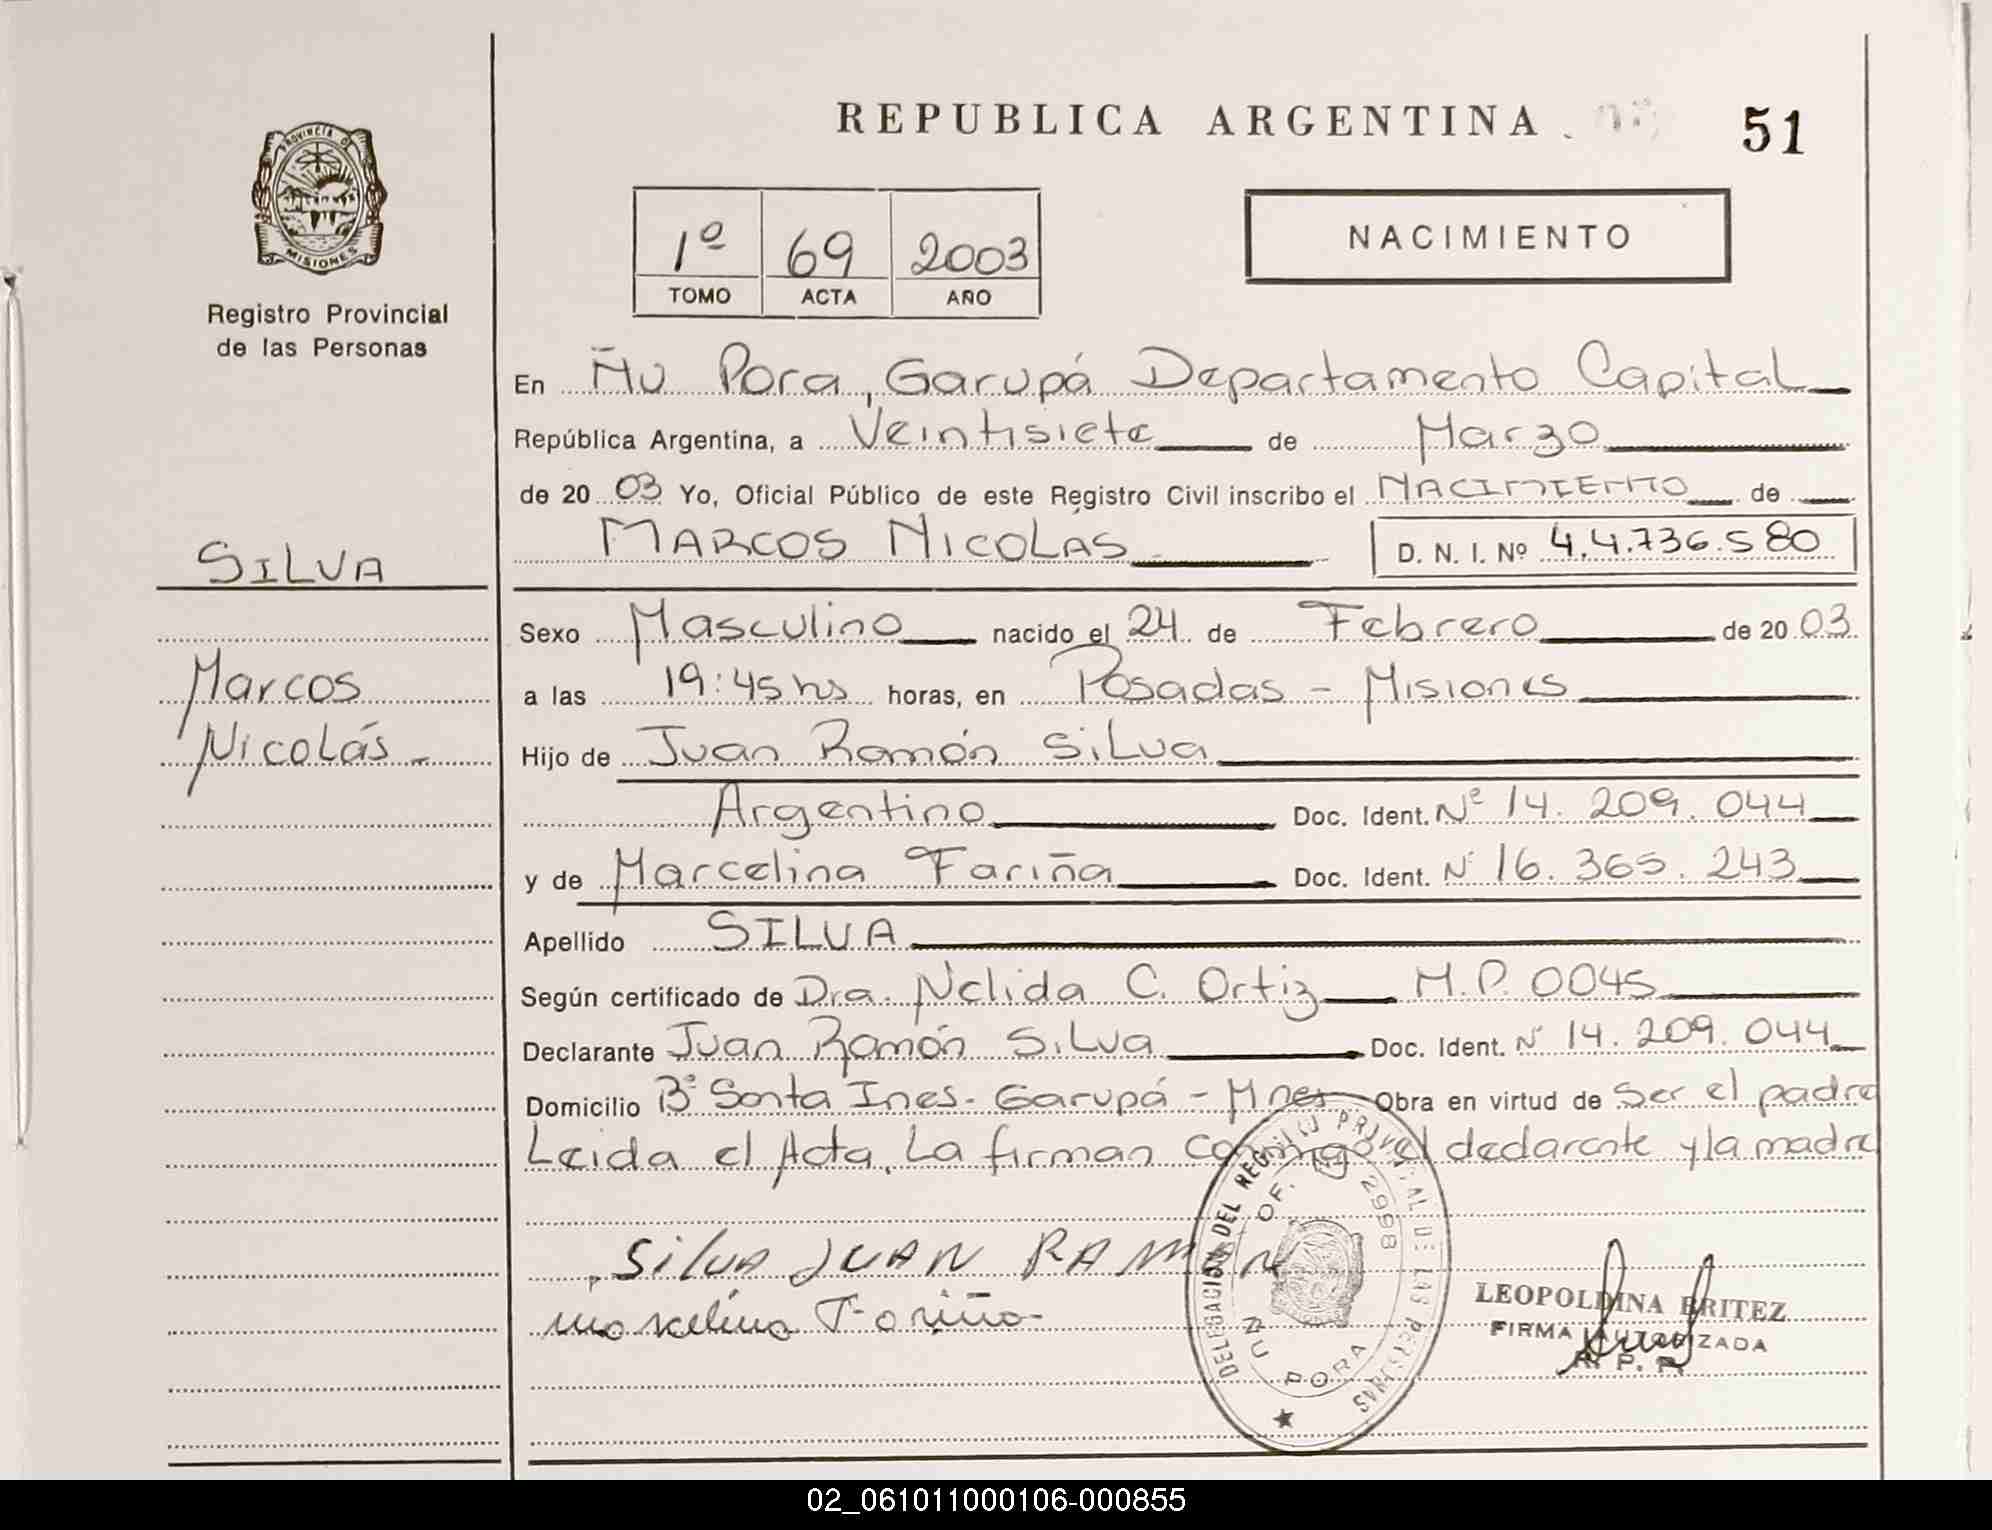 REPUBLICA ARGENTINA
51
PROVINCIA DE
MISIONES
Registro Provincial
de las Personas
1º 69 2003
TOMO ACTA AÑO
NACIMIENTO
En Ñu Pora, Garupá Departamento Capital
República Argentina, a Veintisiete de Marzo
de 2003 Yo, Oficial Público de este Registro Civil inscribo el NACIMIENTO de
MARCOS NICOLÁS D. N. I. Nº 44.736.580
SILVA
Marcos
Nicolás
Sexo Masculino nacido el 24 de Febrero de 2003
a las 19:45 hs horas, en Posadas - Misiones
Hijo de Juan Ramón Silva
Argentino Doc. Ident. Nº 14.209.044
y de Marcelina Fariña Doc. Ident. Nº 16.365.243
Apellido SILVA
Según certificado de Dra. Nelida C. Ortiz M.P. 0045
Declarante Juan Ramón Silva Doc. Ident. Nº 14.209.044
Domicilio Bº Santa Ines - Garupá - Mnes Obra en virtud de ser el padre
Leida el Acta, La firman conmigo el declarante y la madre
SilVA JUAN RAMON
Marcelina Fariña
DELEGACION DEL REGISTRO PROVINCIAL DE LAS PERSONAS
OF. 2998
ÑU PORA
LEOPOLDINA BRITEZ
FIRMA AUTORIZADA
R. P. P.
02_061011000106-000855